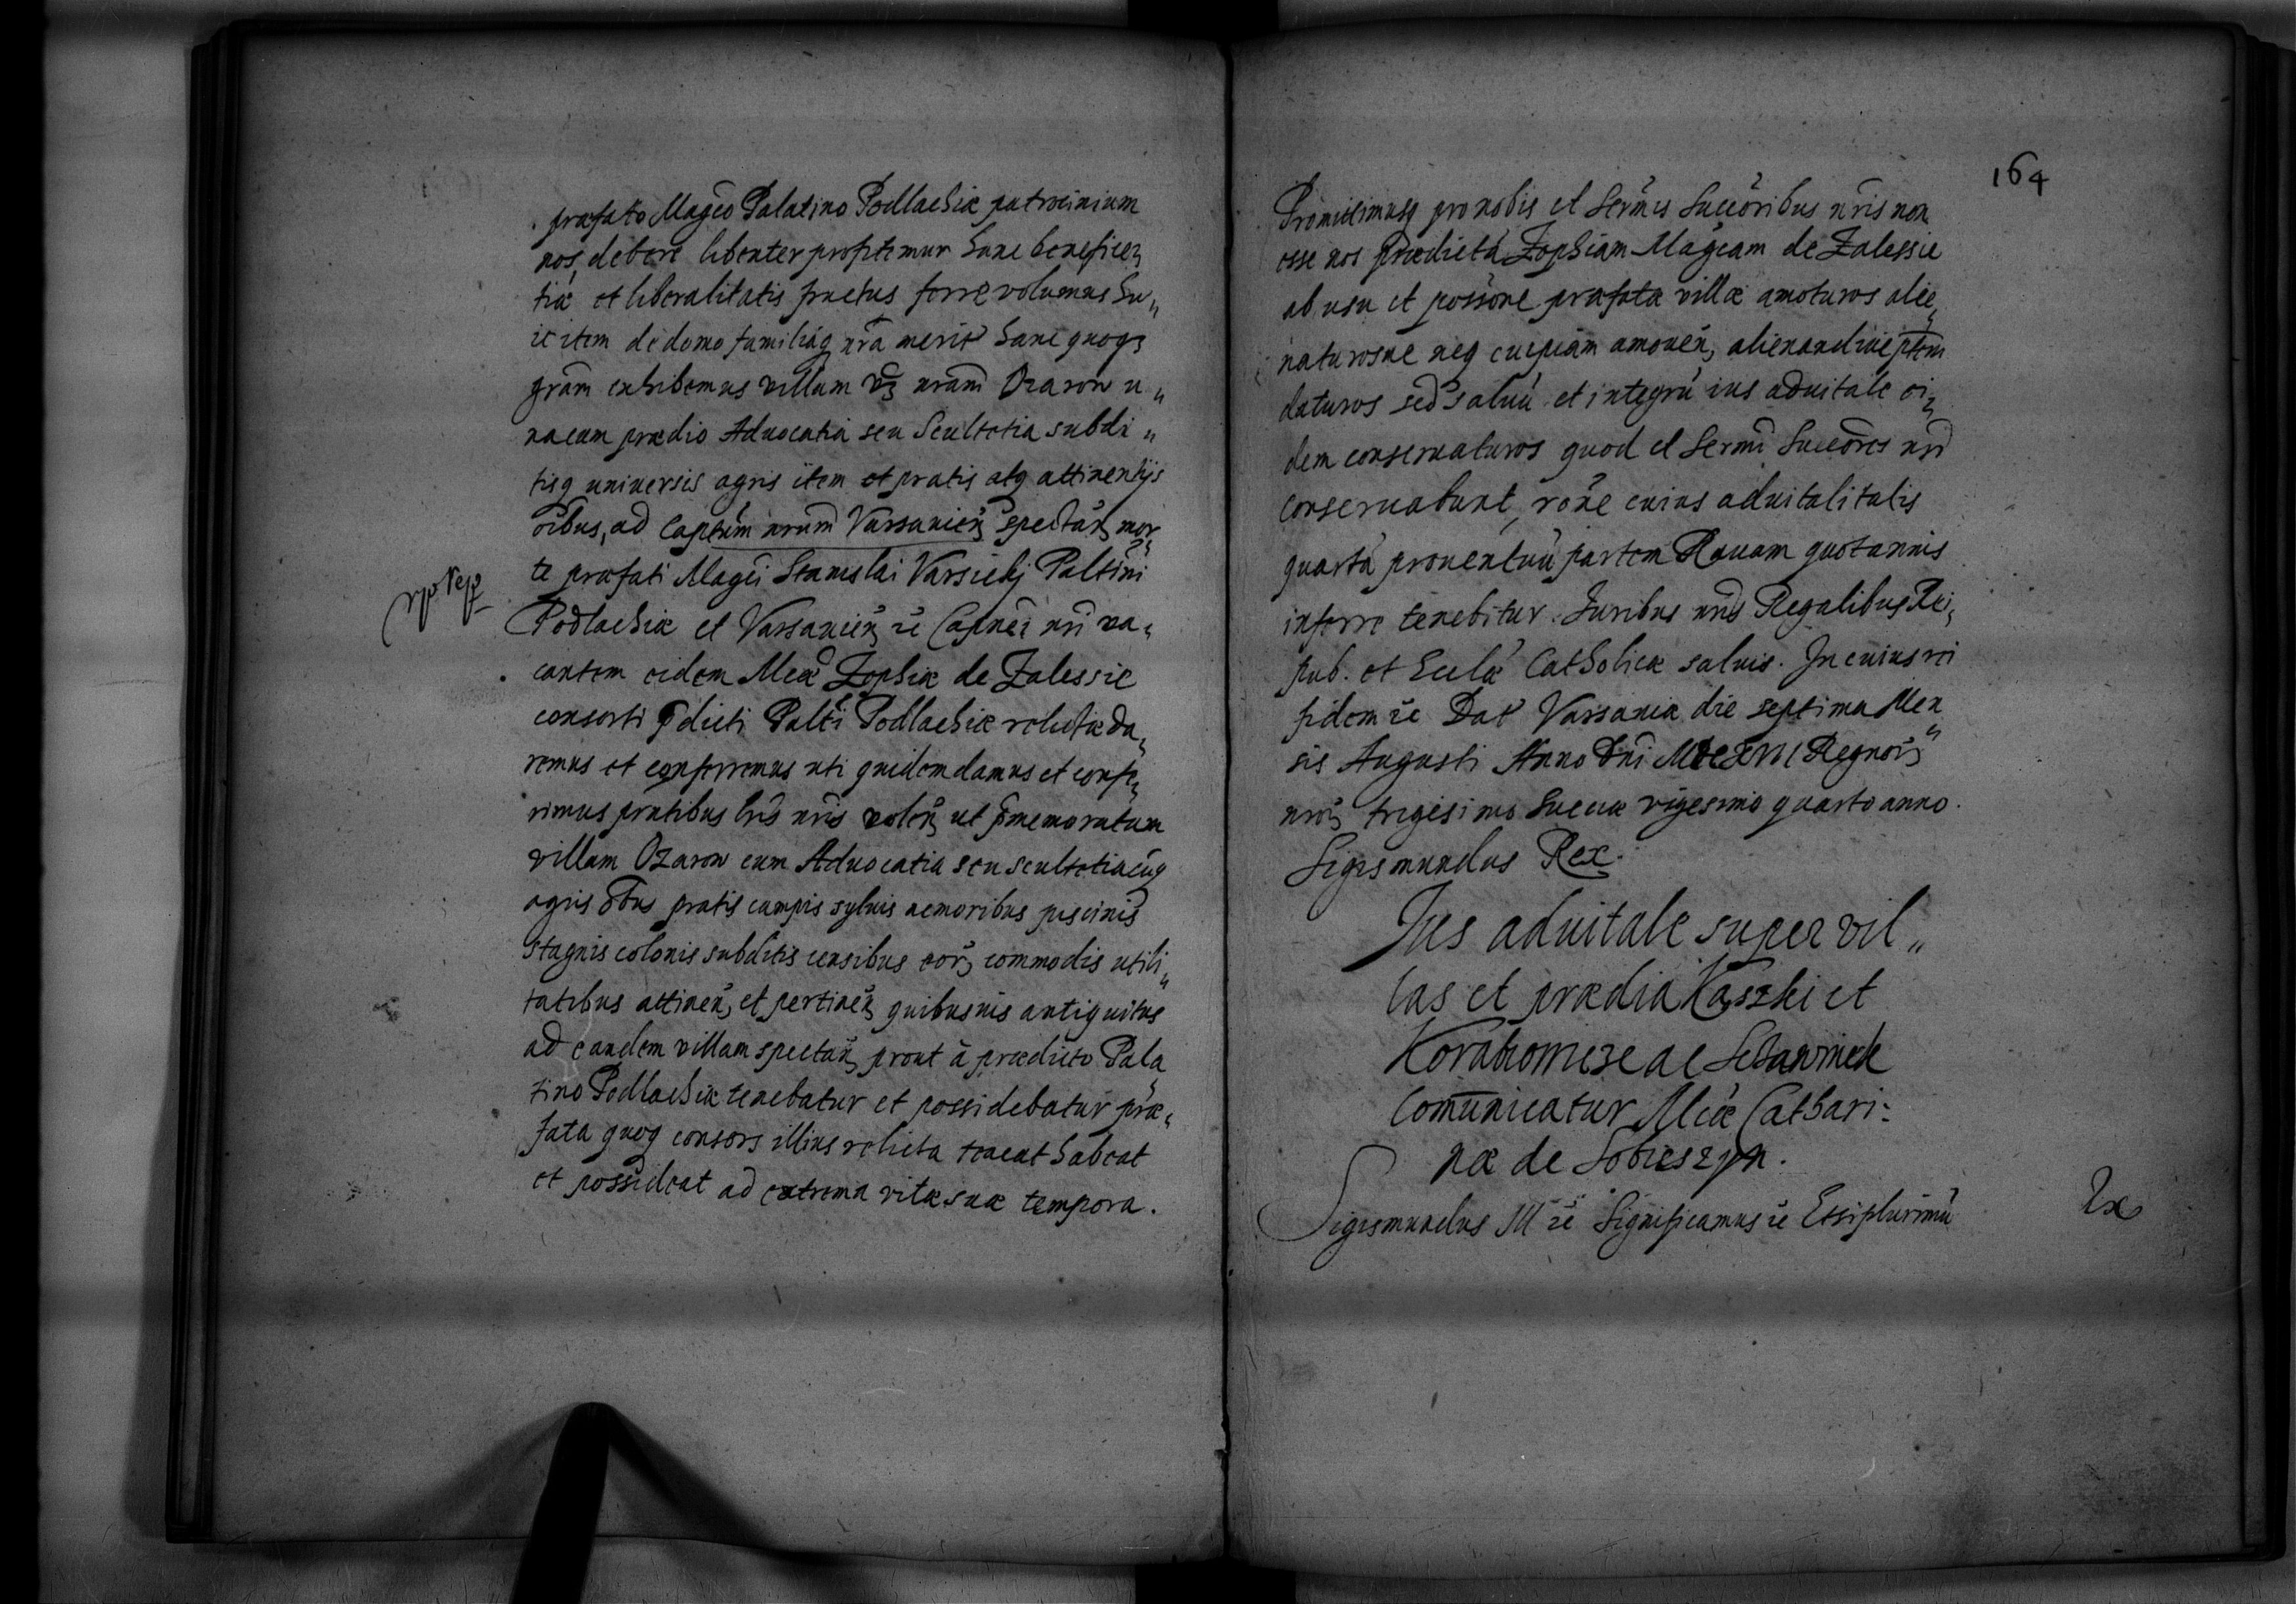 præfato Magco Palatino Podlachiæ patrocinium
nos debere libenter profitemur hanc beneficen„
tiæ et liberalitatis fructus ferre volumus hu„
ic item de domo familiaq nra merit hanc quoq3
gram exhibemus villam vz nram Ozarow u„
na cum prædio Advocatia seu Scultetia subdi„
tisq universis agris item et pratis atq attinentijs
oibus, ad Captum nrum Varsavien spectan mor„
te præfati Magci Stanislai Varsicki Paltini
Podlachiæ et Varsavien zc Capnei nri va„
cantem eidem Mcæ Zophiæ de Zalessie
consorti pdicti Paltni Podlachiæ relictæ da„
remus et conferremus uti quidem damus et confe„
rimus pntibus lris nris volen ut pmemoratam
villam Ozarow cum Advocatia seu scultetia cuq
agris oibus pratis campis sylvis nemoribus piscinis
stagnis colonis subditis censibus eor commodis utili„
tatibus attinen et pertinen quibusvis antiquitus
ad eandem villam spectan prout à prædicto Pala„
tino Podlachiæ tenebatur et possidebatur præ„
fata quoq consors illius relicta teneat habeat
et possideat ad extrema vitæ suæ tempora.
164
Promittimusq pro nobis et Sermis Succoribus nris non
esse nos prædictá Zophiam Magcam de Zalessie
ab usu et possone præfatæ villæ amoturos alie„
naturosve neq cuipiam amoven alienandive ptem
daturos sed salvú et integrú ius advitale ei„
dem conservaturos quod et Sermi Succores nri
conservabunt, rone cuius advitalitatis
quartá proventuú partem Ravam quotannis
inferre tenebitur. Iuribus nris Regalibus Rei„
pub. et Ecclæ Catholicæ salvis. In cuius rei
fidem zc Dat Varsaviæ die septima Men„
sis Augusti Anno Dni MDCXVII Regnor
nror trigesimo Sueciæ vigesimo quarto anno.
Sigismundus Rex.
Jus advitale super vil„
las et prædia Kaszki et
ac
Comunicatur Mcæ Cathari:
næ de Sobieszyn.
Sigismundus III zc Significamus zc Etsi plurimú